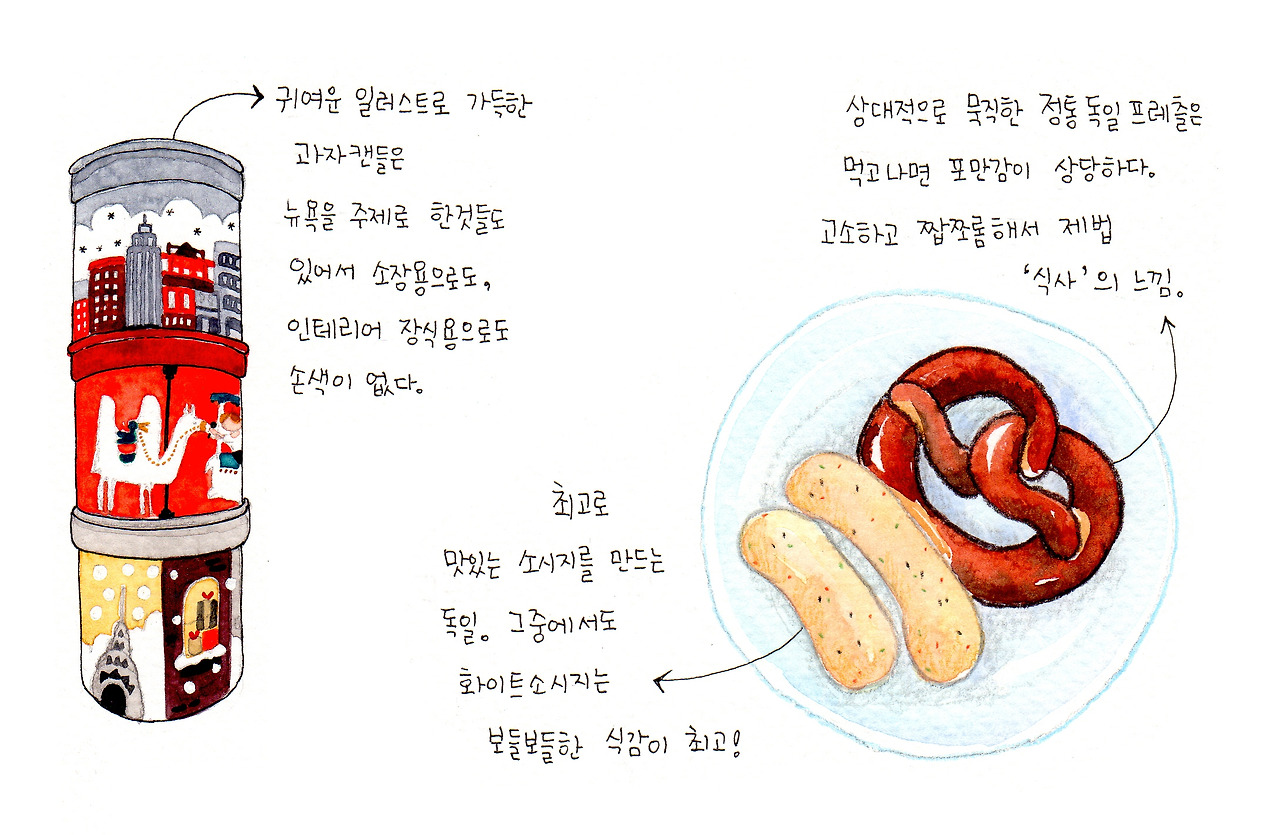 귀여운 일러스트로 가득한
과자캔들은
뉴욕을 주제로 한것들도
있어서 소장용으로도,
인테리어 장식용으로도
손색이 없다.
상대적으로 묵직한 정통독일프레츨은
먹고나면 포만감이 상당하다.
고소하고 짭쪼롬해서 제법
'식사'의 느낌.
최고로
맛있는 소시지를 만드는
독일. 그중에서도
화이트소시지는
보들보들한 식감이 최고!